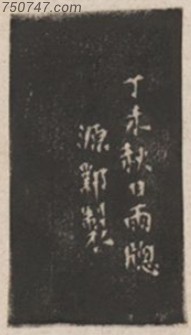 750747.com
丁未秋日雨牎
源鄴製